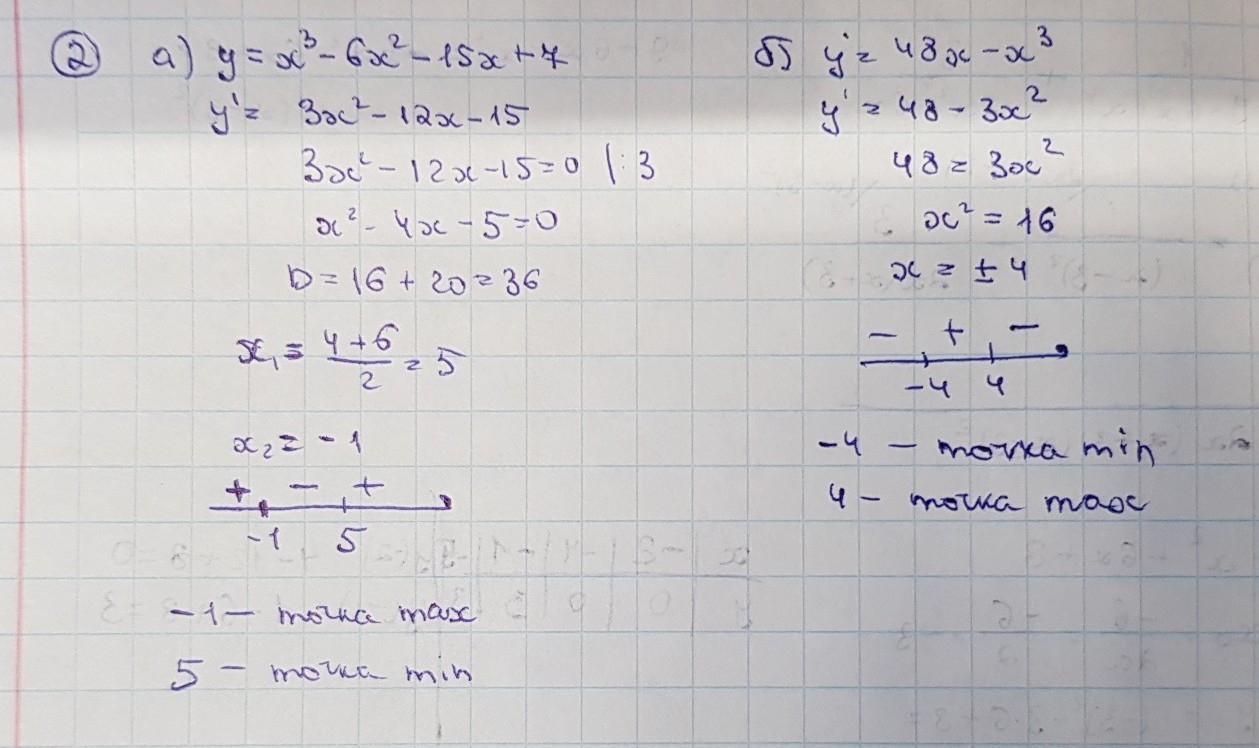 ② а) y = x³ - 6x² - 15x + 7
y' = 3x² - 12x - 15
3x² - 12x - 15 = 0 |:3
x² - 4x - 5 = 0
D = 16 + 20 = 36
x₁ = (4 + 6)/2 = 5
x₂ = -1
+ - +
-1 5
-1 - точка max
5 - точка min
б) y' = 48x - x³
y' = 48 - 3x²
48 = 3x²
x² = 16
x = ± 4
- + -
-4 4
-4 - точка min
4 - точка max